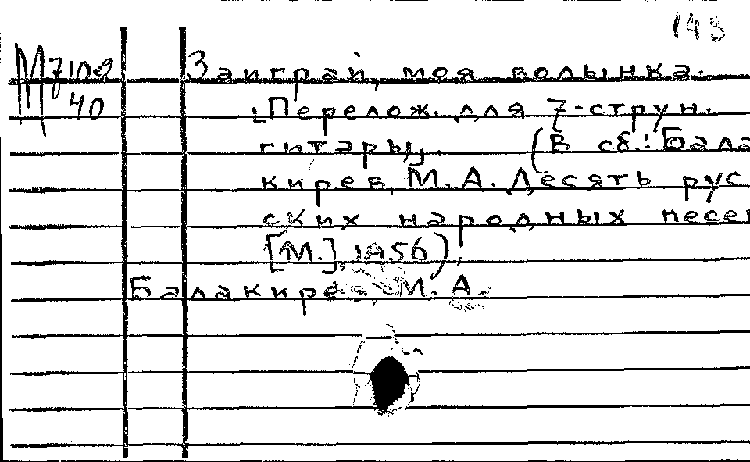 143
М710-9
40
Заиграй, моя волынка.
Перелож. для 7-струн.
гитары,. (В сб.: Бала
кирев, М. А. Десять рус
ских народных песен
[М.], 1956).
Балакирев, М. А.